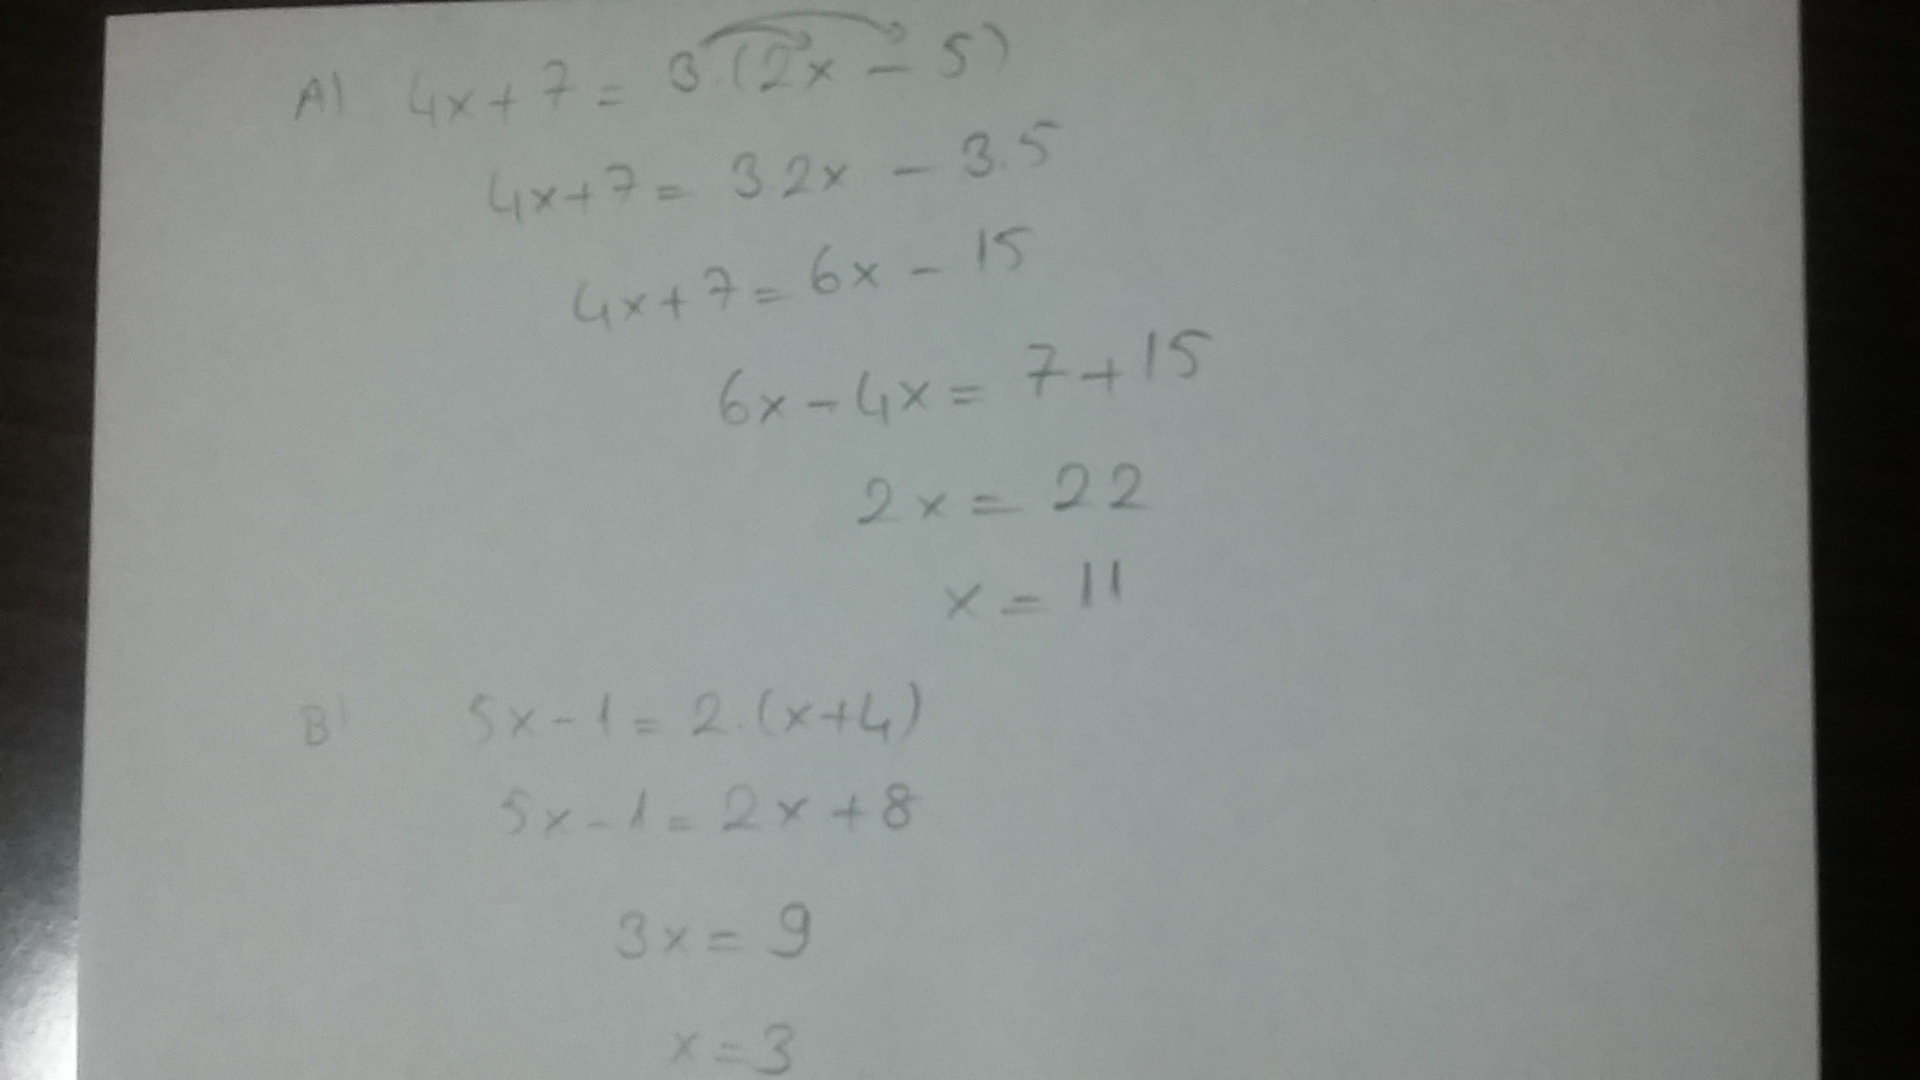 A) 4x+7=3.(2x-5)
4x+7=3.2x-3.5
4x+7=6x-15
6x-4x=7+15
2x=22
x=11
B) 5x-1=2.(x+4)
5x-1=2x+8
3x=9
x=3